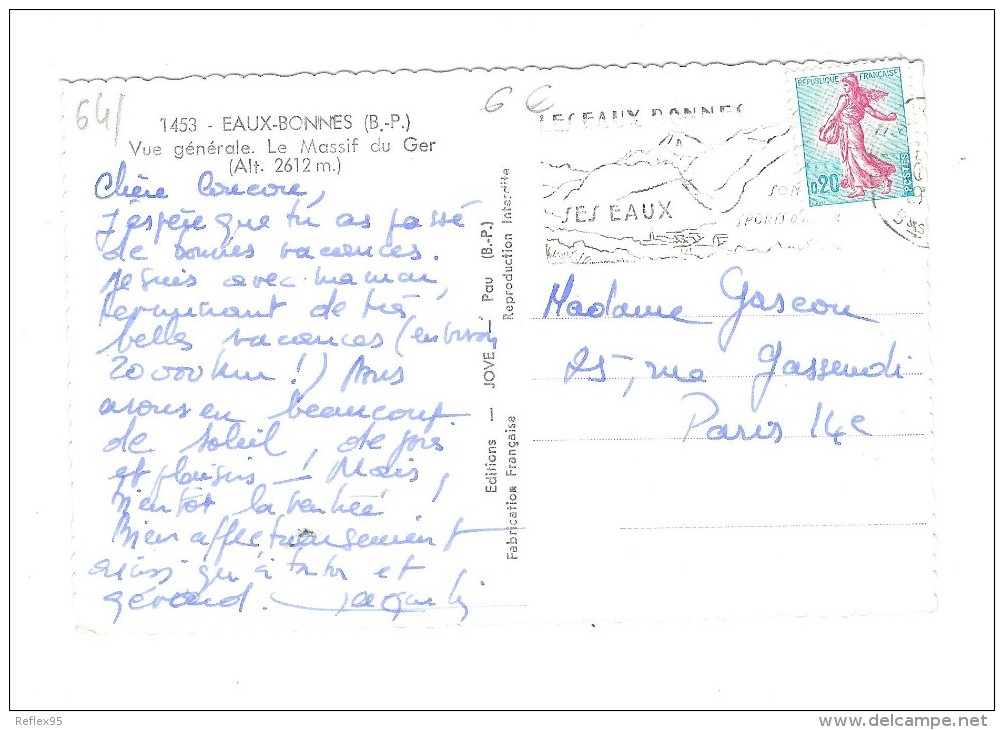 64/
6 €
1453 - EAUX-BONNES (B.-P.)
Vue générale. Le Massif du Ger
(Alt. 2612 m.)
Chère
J'espère que tu as passé
de bonnes vacances.
Je suis avec maman,
terminant de très
belles vacances (environ
20 000 km !) Nous
avons eu beaucoup
de soleil, de joies
et plaisirs _ ! Mais,
bientôt la rentrée
Bien affectueusement
aussi qu'à et
gérard.
Editions — JOVE — Pau (B.-P.)
Fabrication Française
Reproduction Interdite
LES EAUX BONNES
SES EAUX
SON
SPORTS D'
REPUBLIQUE FRANÇAISE
0,20
POSTES
Madame Gascou
25, rue Gassendi
Paris 14e
Reflex95
www.delcampe.net